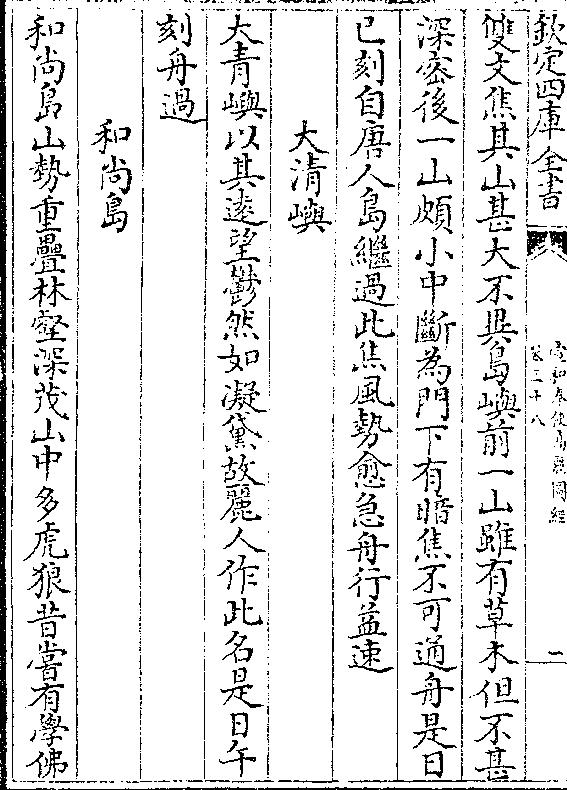 欽定四庫全書
宣和奉使高麗圖經
卷三十八
二
雙女焦其山甚大不異島嶼前一山雖有草木但不甚
深密後一山頗小中斷為門下有暗焦不可通舟是日
已刻自唐人島繼過此焦風勢愈急舟行益速
大清嶼
大青嶼以其遠望鬱然如凝黛故麗人作此名是日午
刻舟過
和尚島
和尚島山勢重疊林壑深茂山中多虎狼昔嘗有學佛